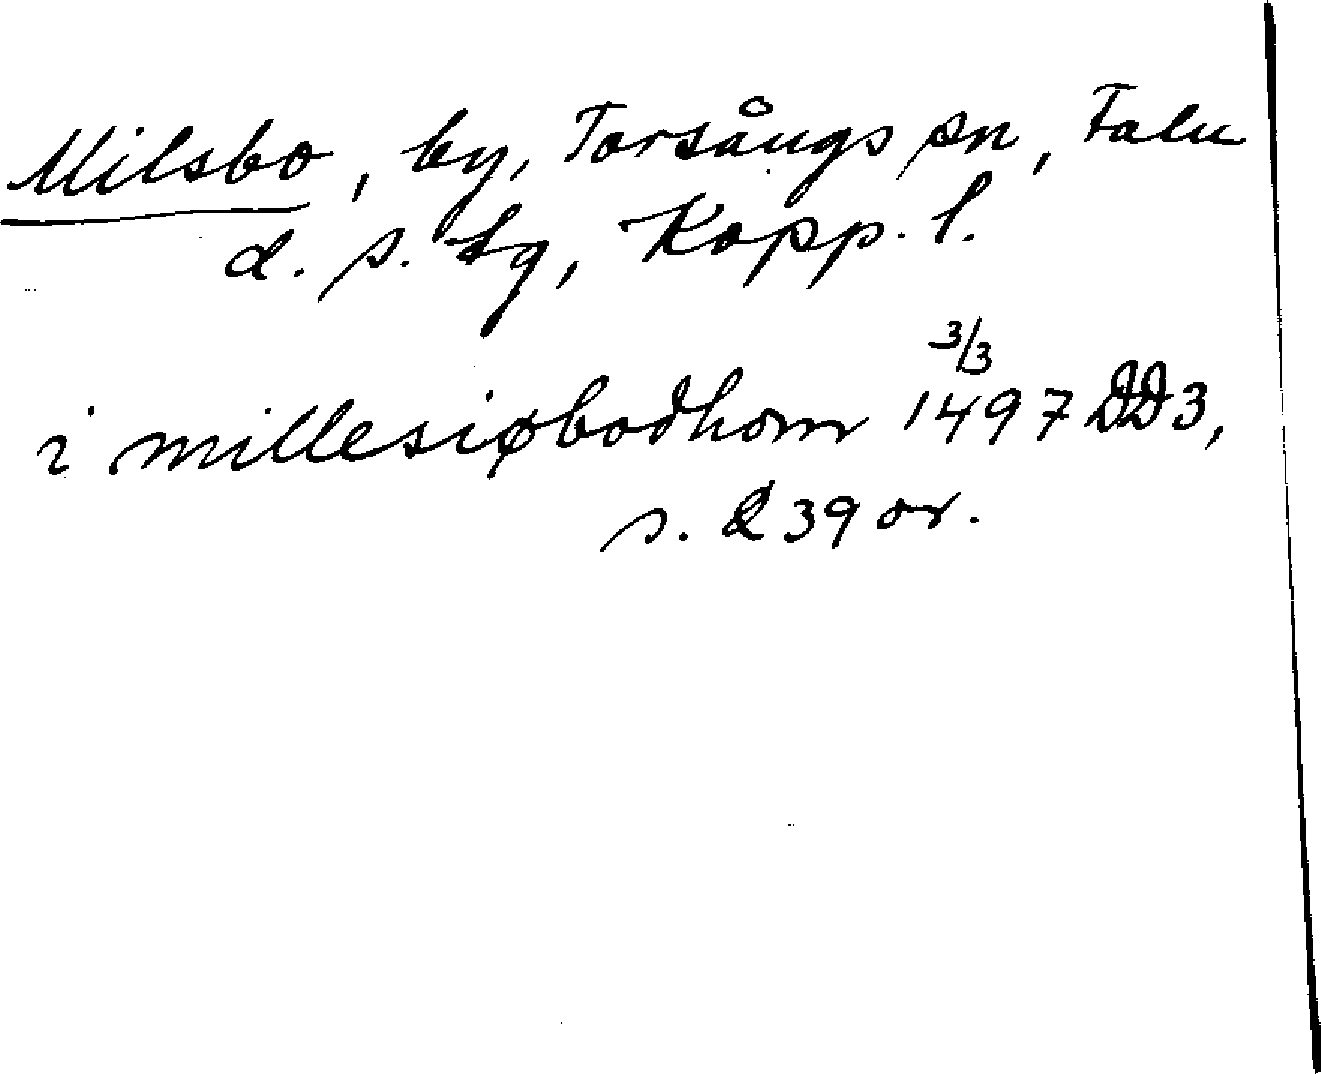 Milsbo, by, Torsångs sn, Falu
d. s. tg, Kopp. l.
3/3
i millesiøbodhom 1497 DD3,
s. 239 or.